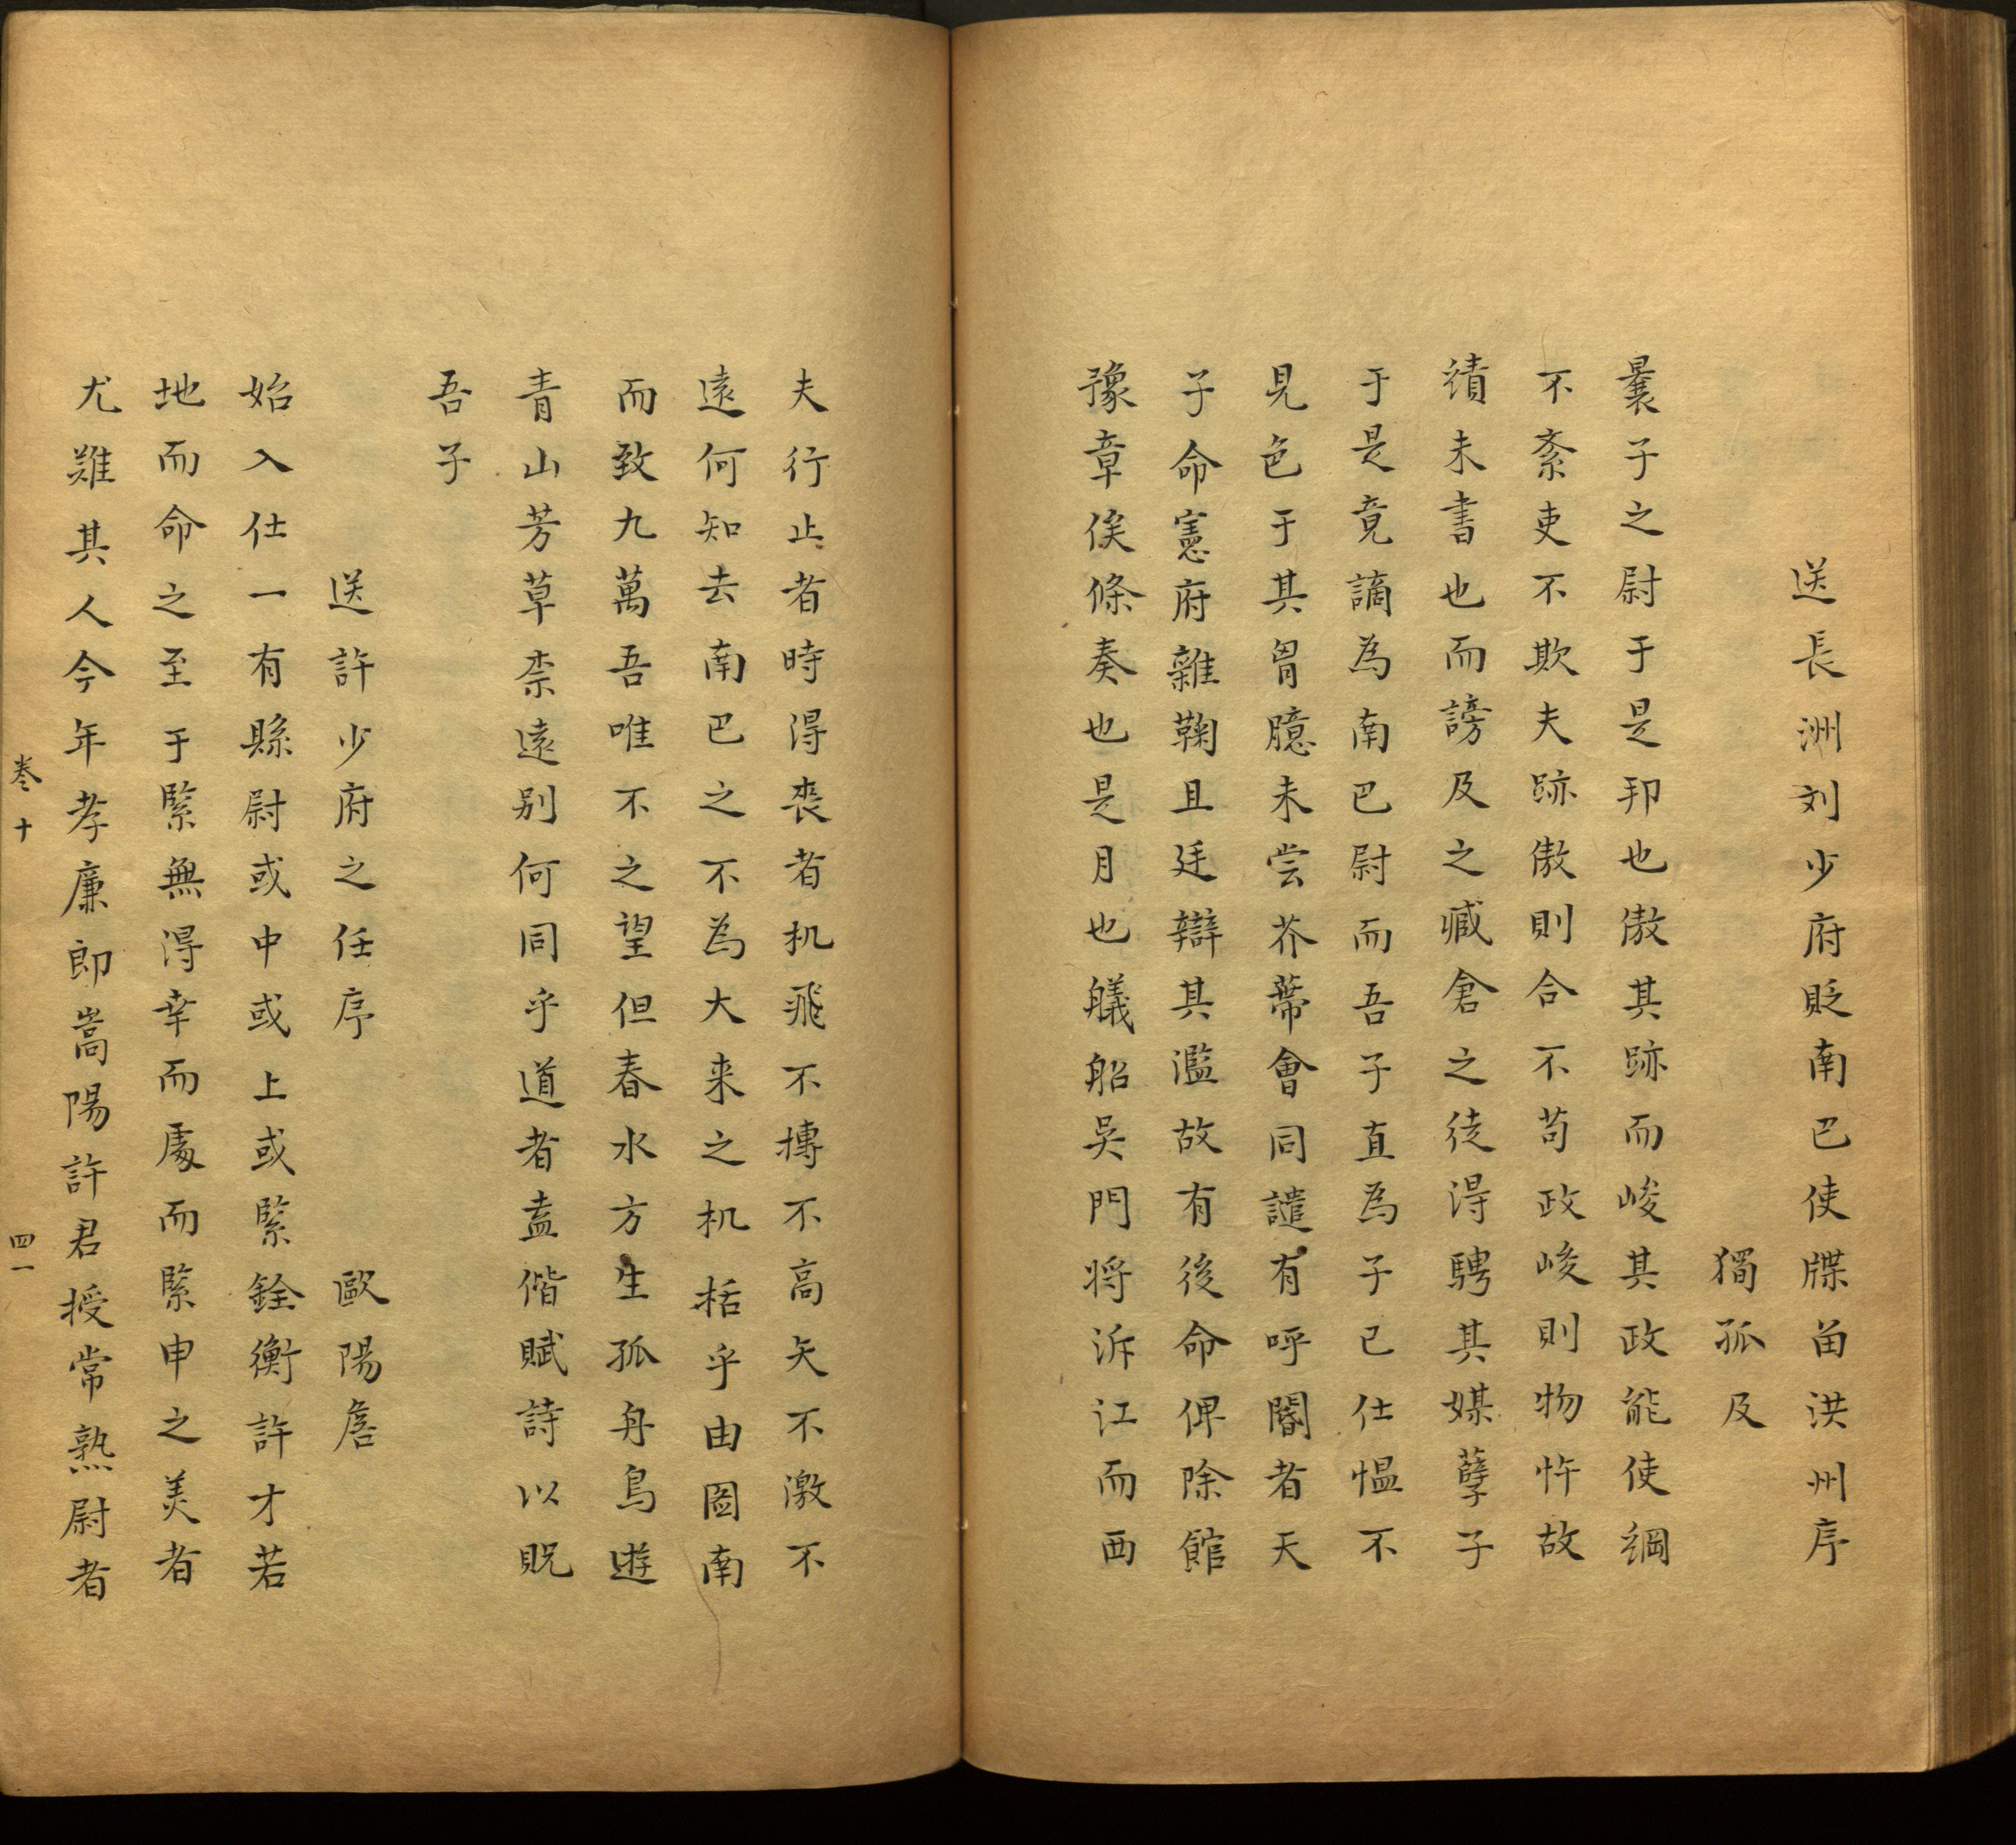 送長洲刘少府貶南巴使牒㽞洪州序
獨孤及
曩子之尉于是邦也傲其跡而峻其政能使綱
不紊吏不欺夫跡傲則合不苟政峻則物忤故
績未書也而謗及之臧倉之徒得騁其媒孽子
于是竟謫為南巴尉而吾子直為子已仕愠不
見色于其胷臆未尝芥蔕會同譴有呼閽者天
子命憲府雜鞠且廷辯其濫故有後命俾除館
豫章俟條奏也是月也艤船吴門将泝江而西
夫行止者時得丧者机飛不摶不高矢不激不
遠何知去南巴之不為大来之机括乎由圖南
而致九萬吾唯不之望但春水方生孤舟鳥逰
青山芳草柰遠别何同乎道者盍偕賦詩以貺
吾子
送許少府之任序
歐陽詹
始入仕一有縣尉或中或上或緊銓衡許才若
地而命之至于緊無得幸而處而緊申之美者
尤難其人今年孝廉郎嵩陽許君授常熟尉者
卷十
四一